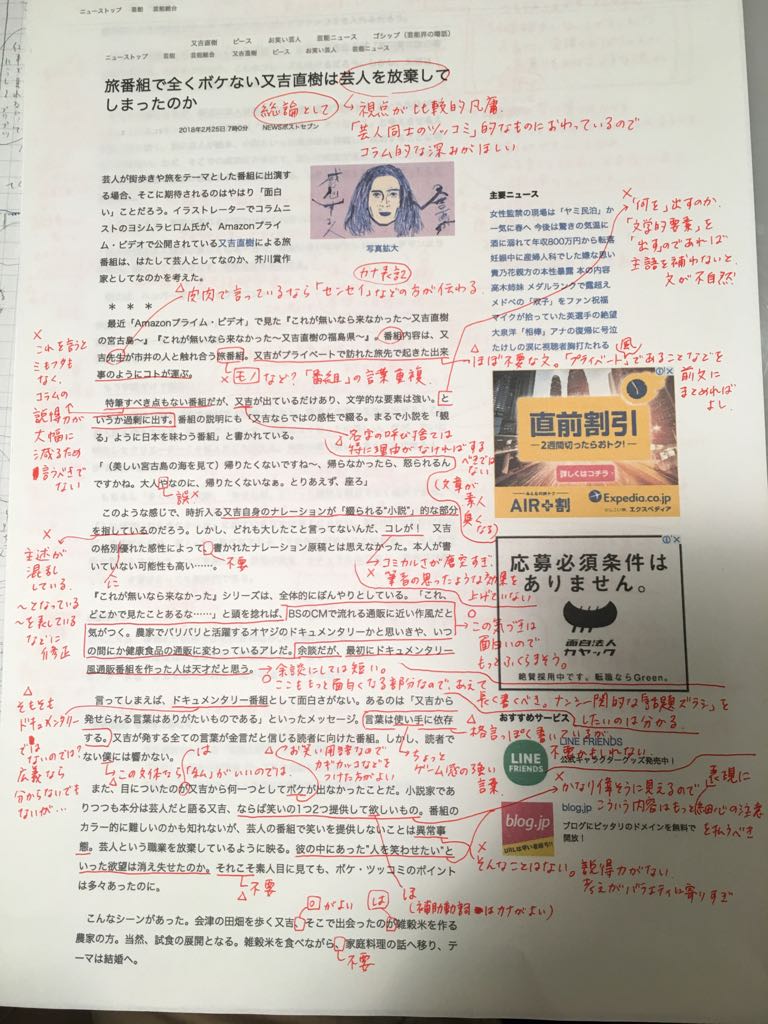 ニューストップ 芸能 芸能総合
又吉直樹 ピース お笑い芸人 芸能ニュース ゴシップ（芸能界の噂話）
ニューストップ 芸能 芸能総合 又吉直樹 ピース お笑い芸人 芸能ニュース
旅番組で全くボケない又吉直樹は芸人を放棄して
しまったのか
総論として
視点が比較的凡庸.
「芸人同士のツッコミ」的なものにおわっているので
コラム的な深みがほしい
2018年2月25日 7時0分 NEWSポストセブン
芸人が街歩きや旅をテーマとした番組に出演す
る場合、そこに期待されるのはやはり「面白
い」ことだろう。イラストレーターでコラムニ
ストのヨシムラヒロム氏が、Amazonプライ
ム・ビデオで公開されている又吉直樹による旅
番組は、はたして芸人としてなのか、芥川賞作
家としてなのかを考えた。
写真拡大
カナ表記
△ 皮肉で言っているなら「センセイ」などの方が伝わる.
＊ ＊ ＊
最近「Amazonプライム・ビデオ」で見た『これが無いなら来なかった〜又吉直樹
の宮古島〜』『これが無いなら来なかった〜又吉直樹の福島県〜』。番組内容は、又
吉先生が市井の人と触れ合う旅番組。又吉がプライベートで訪れた旅先で起きた出来
事のようにコトが運ぶ。
× モノ など？「番組」の言葉重複.
△ ほぼ不要な文.「プライベート風」であることなどを
前文に
まとめれば
よし.
× これを言うと
ミもフタも
なく、
コラムの
説得力が
大幅に
減るため
言うべきで
ない
特筆すべき点もない番組だが、又吉が出ているだけあり、文学的な要素は強い。と
いうか過剰に出す。番組の説明にも「又吉ならではの感性で綴る。まるで小説を「観
る」ように日本を味わう番組」と書かれている。
△ 名字の呼び捨ては
特に理由がなければする
べきではない
(文章が
素人
臭くなる)
× 「何を」出すのか.
「文学的要素」を
出すのであれば
主語を補わないと
文が不自然
「（美しい宮古島の海を見て）帰りたくないですね〜、帰らなかったら、怒られるん
ですかね。大人やなのに、帰りたくないなぁ。とりあえず、座ろ」
誤×
このような感じで、時折入る又吉自身のナレーションが「綴られる"小説"」的な部分
を指しているのだろう。しかし、どれも大したこと言ってないんだ、コレが！ 又吉
の格別優れた感性によって、書かれたナレーション原稿とは思えなかった。本人が書
いていない可能性も高い……。
に
不要
× コミカルさが唐突すぎ.
筆者の思ったような効果を
上げていない
× 主述が
混乱
している.
〜となっている
〜を表している
などに
修正
『これが無いなら来なかった』シリーズは、全体的にぼんやりとしている。「これ、
どこかで見たことあるな……」と頭を捻れば、BSのCMで流れる通販に近い作風だと
気がつく。農家でバリバリと活躍するオヤジのドキュメンタリーかと思いきや、いつ
の間にか健康食品の通販に変わっているアレだ。余談だが、最初にドキュメンタリー
風通販番組を作った人は天才だと思う。
○ この気づきは
面白いので
もっとふくらます.
○ 余談にしては短い.
ここももっと面白くなる部分なので、あえて
長く書くべき. ナンシー関的な「話題ズラし」を
したいのは分かる.
△ そもそも
ドキュメンタリー
ではないのでは？
広義なら
分からないでも
ないが…
言ってしまえば、ドキュメンタリー番組として面白さがない。あるのは「又吉から
発せられる言葉はありがたいものである」といったメッセージ。言葉は使い手に依存
する。又吉が発する全ての言葉が金言だと信じる読者に向けた番組。しかし、読者で
ない僕には響かない。
△ 格言っぽく書いているが
不要かもしれない.
この文体なら「私」がいいのでは.
は
△ お笑い用語なので
カギカッコなどを
つけた方がよい
ちょっと
ゲーム感の強い
言葉
また、目についたのが又吉から何一つとしてボケが出なかったことだ。小説家であ
りつつも本分は芸人だと語る又吉、ならば笑いの1つ2つ提供して欲しいもの。番組の
カラー的に難しいのかも知れないが、芸人の番組で笑いを提供しないことは異常事
態。芸人という職業を放棄しているように映る。彼の中にあった"人を笑わせたい"と
いった欲望は消え失せたのか。それこそ素人目に見ても、ボケ・ツッコミのポイント
は多々あったのに。
△ 不要
× かなり偉そうに見えるので 表現に
こういう内容はもっと細心の注意
を払うべき
× そんなことはない. 説得力がない.
考えがバラエティに寄りすぎ
ほ
(補助動詞はカナがよい)
。がよい
は
こんなシーンがあった。会津の田畑を歩く又吉、そこで出会ったのが雑穀米を作る
農家の方。当然、試食の展開となる。雑穀米を食べながら、家庭料理の話へ移り、テ
ーマは結婚へ。
不要
主要ニュース
女性監禁の現場は「ヤミ民泊」か
一気に春へ 今後は驚きの気温に
酒に溺れて年収800万円から転落
妊娠中に産婦人科でした嫌な思い
貴乃花親方の本性暴露 本の内容
高木姉妹 メダルランクで露超え
メドベの「双子」をファン祝福
マイクが拾っていた英選手の絶望
大泉洋「相棒」アナの復帰に号泣
たけしの涙に視聴者胸打たれる
直前割引
ー2週間切ったらおトク！ー
詳しくはコチラ
AIR+割
Expedia.co.jp
空が選べる、エクスペディア
応募必須条件は
ありません。
面白法人
カヤック
絶賛採用中です。転職ならGreen。
おすすめサービス
LINE FRIENDS
LINE
FRIENDS
公式キャラクターグッズ発売中！
blog.jp
blog.jp
URLは早い者勝ち！
ブログにピッタリのドメインを無料で
開放！